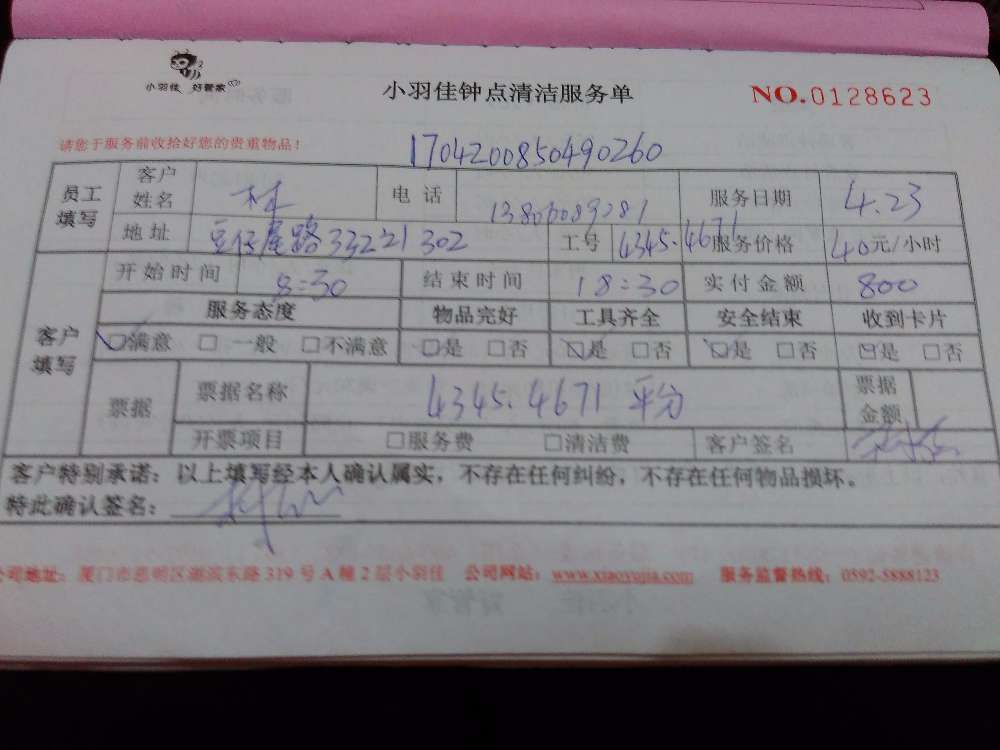 小羽佳 好管家
小羽佳钟点清洁服务单
NO.0128623
请您于服务前收拾好您的贵重物品！
1704200850490260
员工填写 客户姓名 林 电话 13806089281 服务日期 4.23
地址 豆仔尾路332之1 302 工号 4345.4671 服务价格 40元/小时
客户填写 开始时间 8:30 结束时间 18:30 实付金额 800
服务态度 物品完好 工具齐全 安全结束 收到卡片
☑满意 □一般 □不满意 ☑是 □否 ☑是 □否 ☑是 □否 ☑是 □否
票据 票据名称 4345.4671 平分 票据金额
开票项目 □服务费 □清洁费 客户签名
客户特别承诺：以上填写经本人确认属实，不存在任何纠纷，不存在任何物品损坏。
特此确认签名：
公司地址：厦门市思明区湖滨东路319号A幢2层小羽佳 公司网站：www.xiaoyujia.com 服务监督热线：0592-5888123